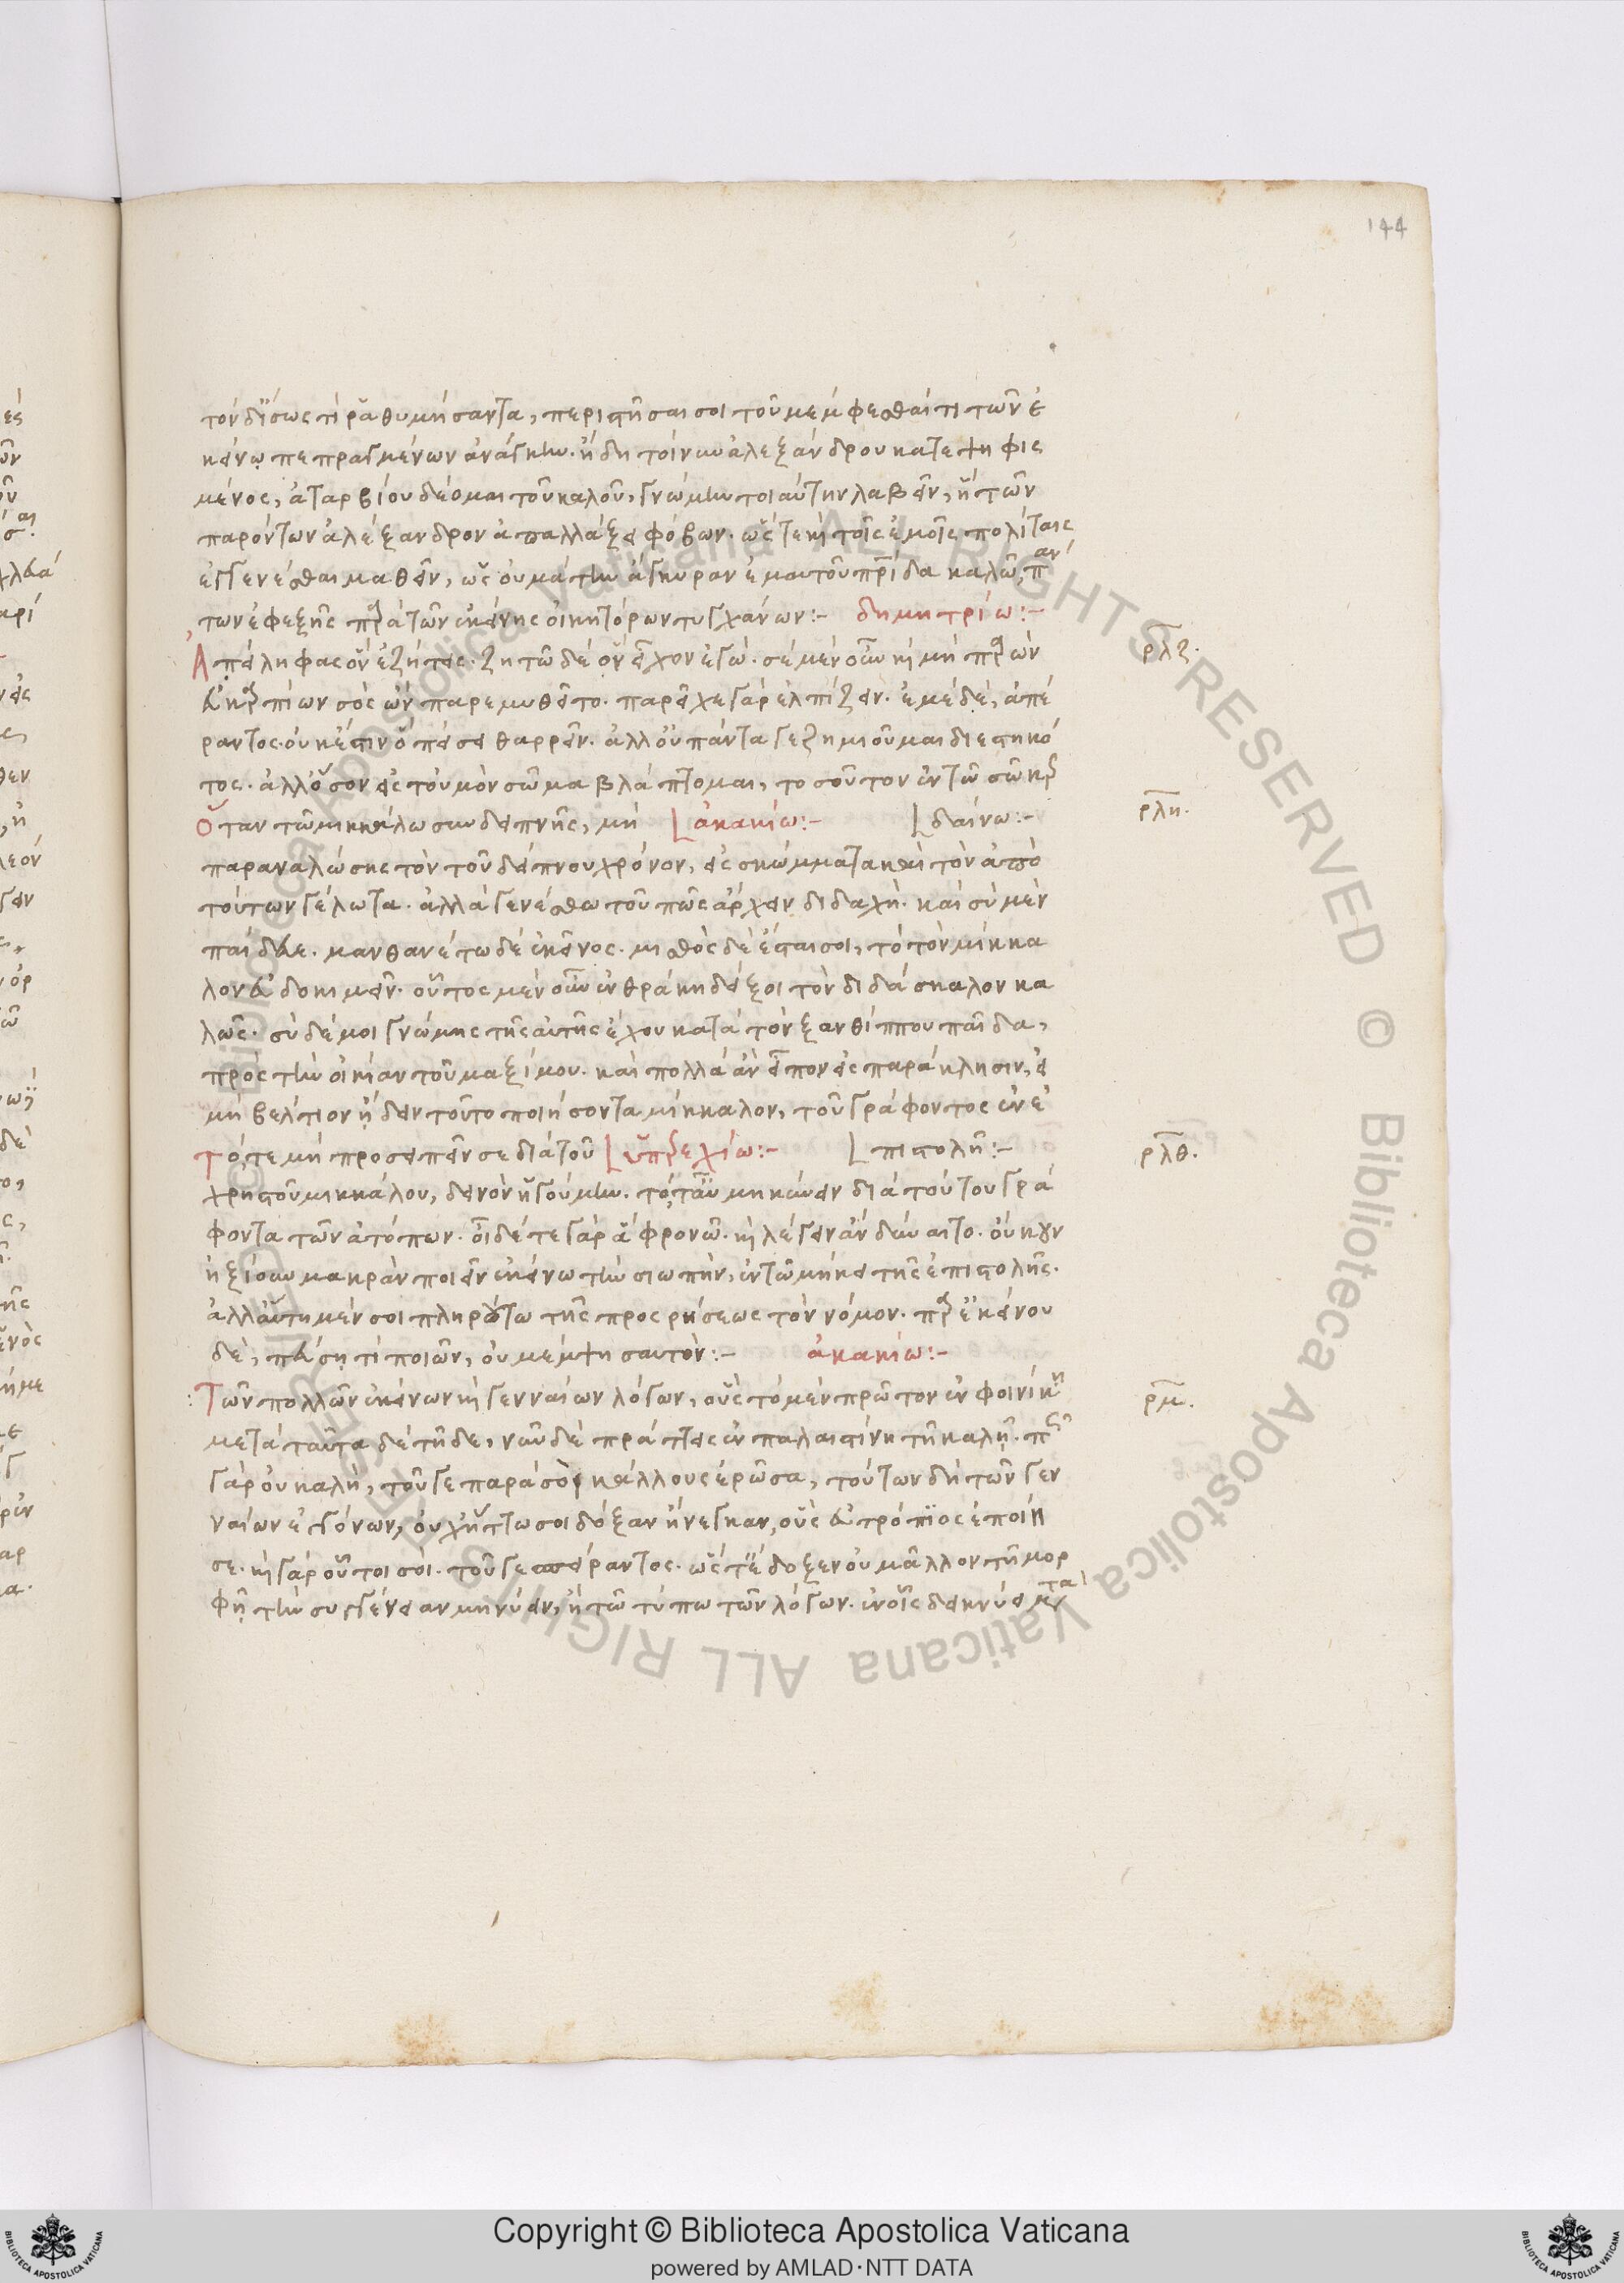 144
τὸν δ' ἴσως τι ῥᾳθυμήσαντα, περιστῆσαί σοι τοῦ μέμφεσθαί τι τῶν ἐ
κείνῳ πεπραγμένων ἀνάγκην. ἤδη τοίνυν ἀλεξάνδρου κατεψηφις
μένος, ἀταρβίου δέομαι τοῦ καλοῦ, γνώμην τοιαύτην λαβεῖν, ἣ τῶν
παρόντων ἀλέξανδρον ἀπαλλάξει φόβων. ὥστε κ τοῖς ἐμοῖς πολίταις
ἐγγενέσθαι μαθεῖν, ὡς οὐ μάτην ἄγκυραν ἐμαυτοῦ πρίδα καλῶ, παν
των ἐφεξῆς πρὰ τῶν ἐκείνης οἰκητόρων τυγχάνων:– δημητρίω:–
ρλζ.
Ἀπείληφας οὓν ἐζήτεις. ζητῶ δὲ ὃν εἶχον ἐγώ. σὲ μὲν οὖν κ μὴ πρὼν
εὐτρόπιων σὸς ὢν παρεμυθεῖτο. παρεῖχε γὰρ ἐλπίζειν. ἐμὲ δὲ, ἀπέ
ραντος. οὐκ ἔστιν ὃ πείσει θαρρεῖν. ἀλλ' οὐ πάντα γε ζημιοῦμαι διεστηκό
τος. ἀλλ' ὅσον εἰς τοὐμὸν σῶμα βλάπτομαι, τοσοῦτον ἐν τῶ σῶ κρ
ρλη.
Ὅταν τῶ μικκάλω συνδειπνῆς, μὴ ἀκακίω:– δαίνω:–
παραναλώσης τὸν τοῦ δείπνου χρόνον, εἰς σκώμματα καὶ τὸν ἀπὸ
τούτων γέλωτα. ἀλλὰ γενέσθω τοῦ πῶς ἄρχειν διδαχή. καὶ σὺ μὲν
παίδευε. μανθανέτω δὲ ἐκεῖνος. μισθὸς δὲ ἔσται σοι, τὸ τὸν μίκκα
λον εὐδοκιμεῖν. οὗτος μὲν οὖν ἐν θράκη δείξοι τὸν διδάσκαλον κα
λῶς. σὺ δέ μοι γνώμης τῆς αὐτῆς ἔχου κατὰ τὸν ξανθίππου παῖδα,
πρὸς τὴν οἰκίαν τοῦ μαξίμου. καὶ πολλὰ ἂν εἶπον εἰς παράκλησιν, εἰ
μὴ βέλτιον ᾔδειν τοῦτο ποιήσοντα μίκκαλον, τοῦ γράφοντος ἐν ἐ
ρλθ.
Τό, τε μὴ προσειπεῖν σε διὰ τοῦ ὑπερεχίω:– πιστολῆ:–
χρηστοῦ μικκάλου, δεινὸν ἡγούμην. τό, τ' αὖ μηκύνειν διὰ τούτου γρά
φοντα τῶν ἀτόπων. οἶδέ τε γὰρ ἃ φρονῶ. κ λέγειν ἂν δύναιτο. οὐκουν
ἠξίουν μακρὰν ποιεῖν ἐκείνω τὴν σιωπὴν, ἐν τῶ μήκει τῆς ἐπιστολῆς.
ἀλλ' αὕτη μέν σοι πληρούτω τῆς προσρήσεως τὸν νόμον. πρ ἐκείνου
δὲ, πεύση τί ποιῶν, οὐ μέμψη σαυτόν:– ἀκακίω:–
ρμ.
Τῶν πολλῶν ἐκείνων κ γενναίων λόγων, οὓς τὸ μὲν πρῶτον ἐν φοινίκη
μετὰ ταῦτα δὲ τῆδε, νῦν δὲ πράττεις ἐν παλαιστίνη τῆ καλῆ. πῶς
γὰρ οὐ καλὴ, τοῦ γε παρά σοι κάλλους ἐρῶσα, τούτων δὴ τῶν γεν
ναίων ἐγγόνων, οὐχ ἥττω σοι δόξαν ἤνεγκαν, οὓς εὐτρόπϊος ἐποίη
σε. κ γὰρ οὗτοι σοὶ. τοῦ γε σπείραντος. ὥστ' ἔδοξεν οὐ μᾶλλον τῆ μορ
φῆ τὴν συγγένειαν μηνύειν, ἢ τῶ τύπω τῶν λόγων. ἐν οἷς δείκνύει μεται
Copyright © Biblioteca Apostolica Vaticana
powered by AMLAD·NTT DATA